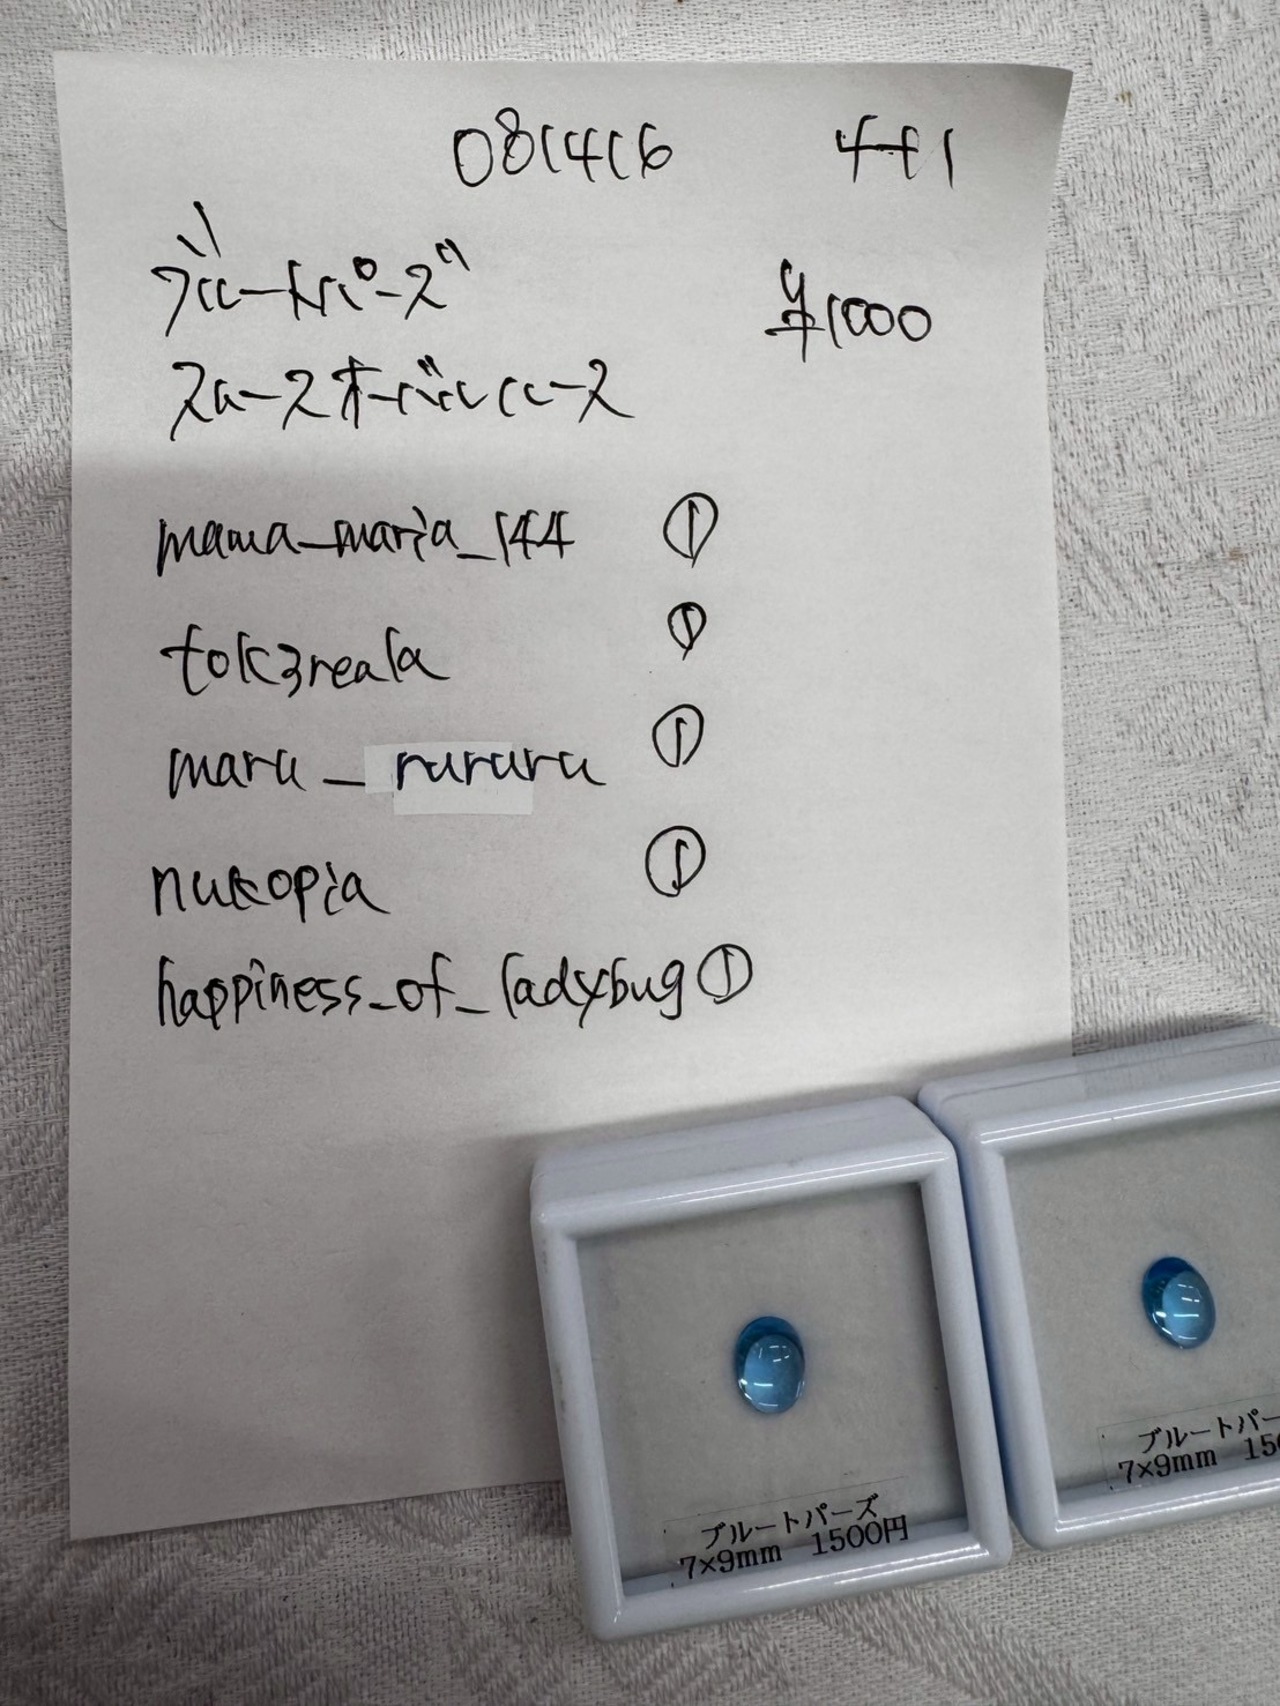 081416 4+1
ブルートパーズ
¥1000
スムースオーバルルース
mama_maria_144 ①
tok3reala ①
maru_rururu ①
nukopia ①
happiness_of_ladybug ①
ブルートパーズ
7×9mm 1500円
ブルートパー
7×9mm 150